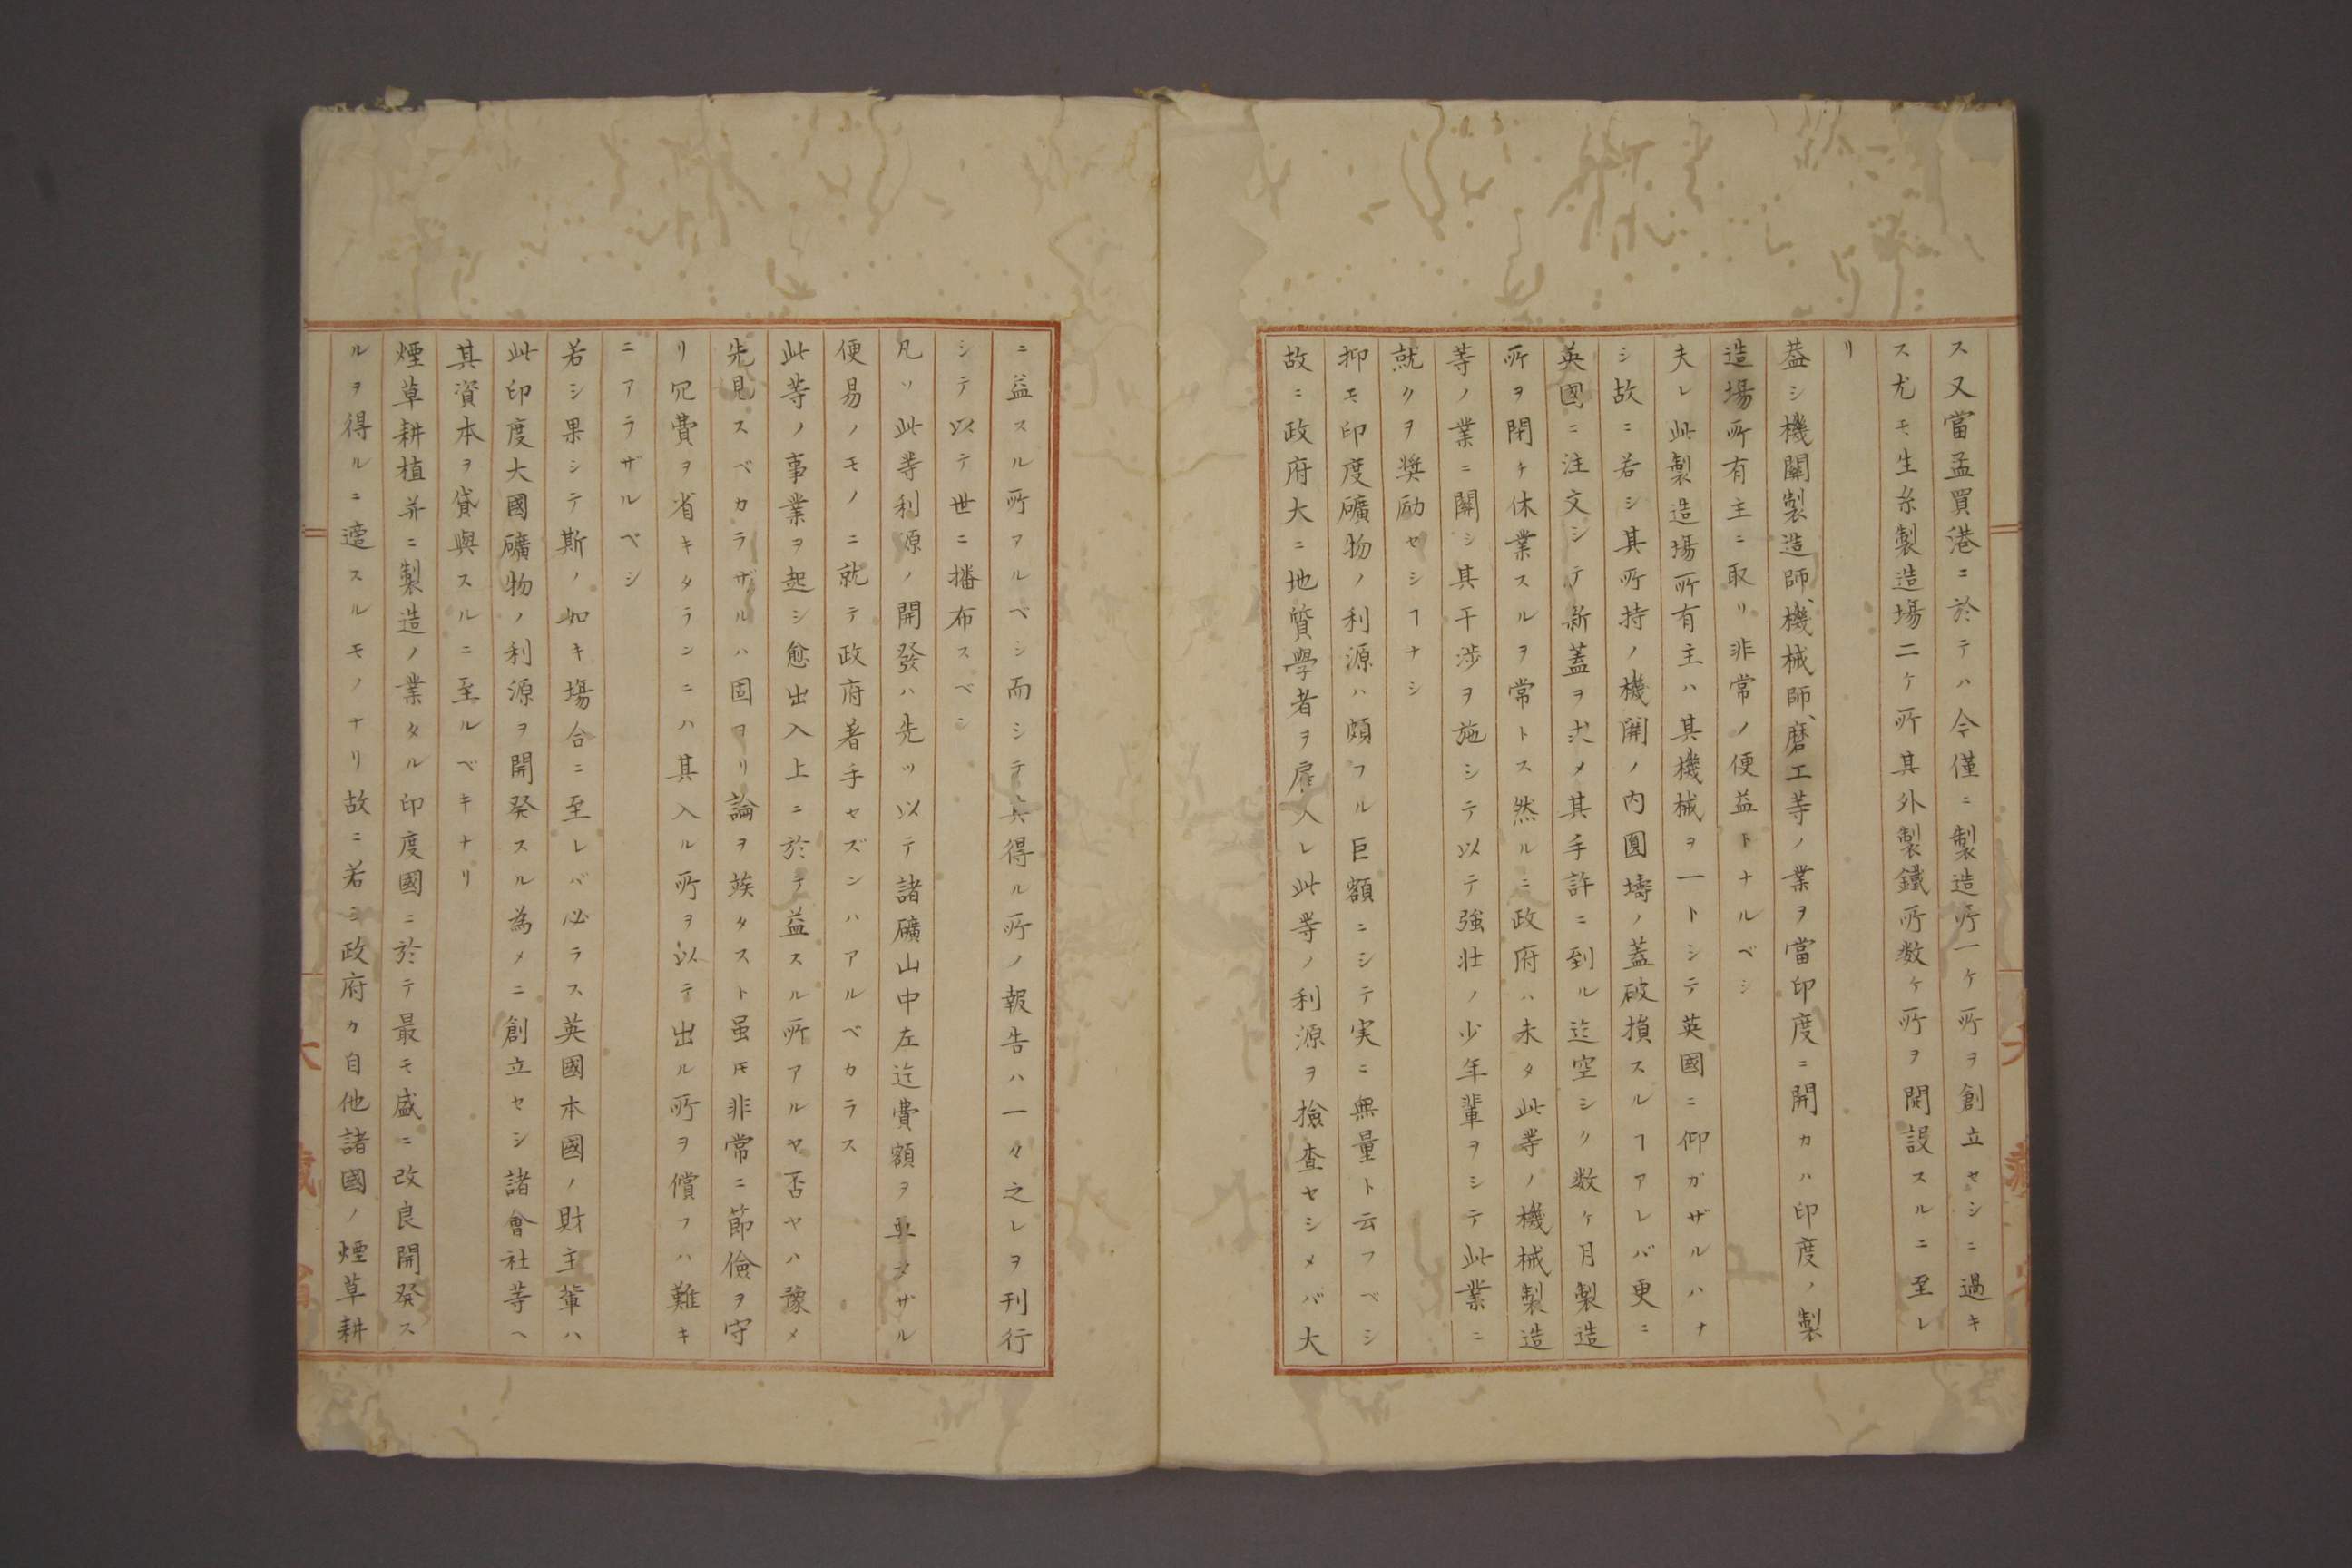 ス又當孟買港ニ於テハ今僅ニ製造所一ケ所ヲ創立セシニ過キ
ス尤モ生糸製造場二ケ所其外製鐵所数ケ所ヲ開設スルニ至レ
リ
蓋シ機關製造師、機械師、磨工等ノ業ヲ當印度ニ開カハ印度ノ製
造場所有主ニ取リ非常ノ便益トナルベシ
夫レ此製造場所有主ハ其機械ヲ一トシテ英國ニ仰ガザルハナ
シ故ニ若シ其所持ノ機関ノ内圓壔ノ蓋破損スルヿアレバ更ニ
英國ニ注文シテ新蓋ヲ求メ其手許ニ到ル迄空シク数ケ月製造
所ヲ閉ケ休業スルヲ常トス然ルニ政府ハ未タ此等ノ機械製造
等ノ業ニ關シ其干渉ヲ施シテ以テ強壮ノ少年輩ヲシテ此業ニ
就クヲ奨励セシヿナシ
抑モ印度礦物ノ利源ハ頗フル巨額ニシテ実ニ無量ト云フベシ
故ニ政府大ニ地質學者ヲ雇入レ此等ノ利源ヲ撿査セシメバ大
ニ益スル所アルベシ而シテ其得ル所ノ報告ハ一々之レヲ刊行
シテ以テ世ニ播布スベシ
凡ソ此等利源ノ開發ハ先ツ以テ諸礦山中左迄費額ヲ要セザル
便易ノモノニ就テ政府着手セズンハアルベカラス
此等ノ事業ヲ起シ愈出入上ニ於テ益スル所アルヤ否ヤハ豫メ
先見スベカラザルハ固ヨリ論ヲ竢タスト虽𪜈非常ニ節儉ヲ守
リ冗費ヲ省キタランニハ其入ル所ヲ以テ出ル所ヲ償フハ難キ
ニアラザルベシ
若シ果シテ斯ノ如キ場合ニ至レバ必ラス英國本國ノ財主輩ハ
此印度大國礦物ノ利源ヲ開発スル為メニ創立セシ諸會社等ヘ
其資本ヲ貸與スルニ至ルベキナリ
煙草耕植并ニ製造ノ業タル印度國ニ於テ最モ盛ニ改良開発ス
ルヲ得ルニ適スルモノナリ故ニ若シ政府カ自他諸國ノ煙草耕